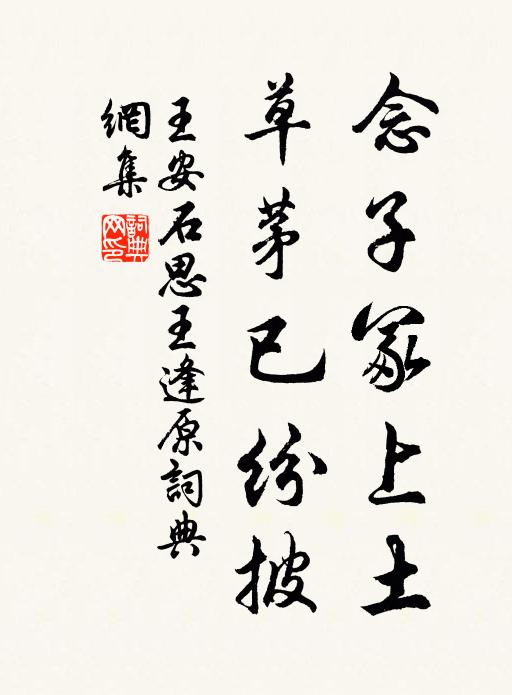 念子冢上土
草茅已纷披
王安石思王逢原詞典
網集
詞典网印